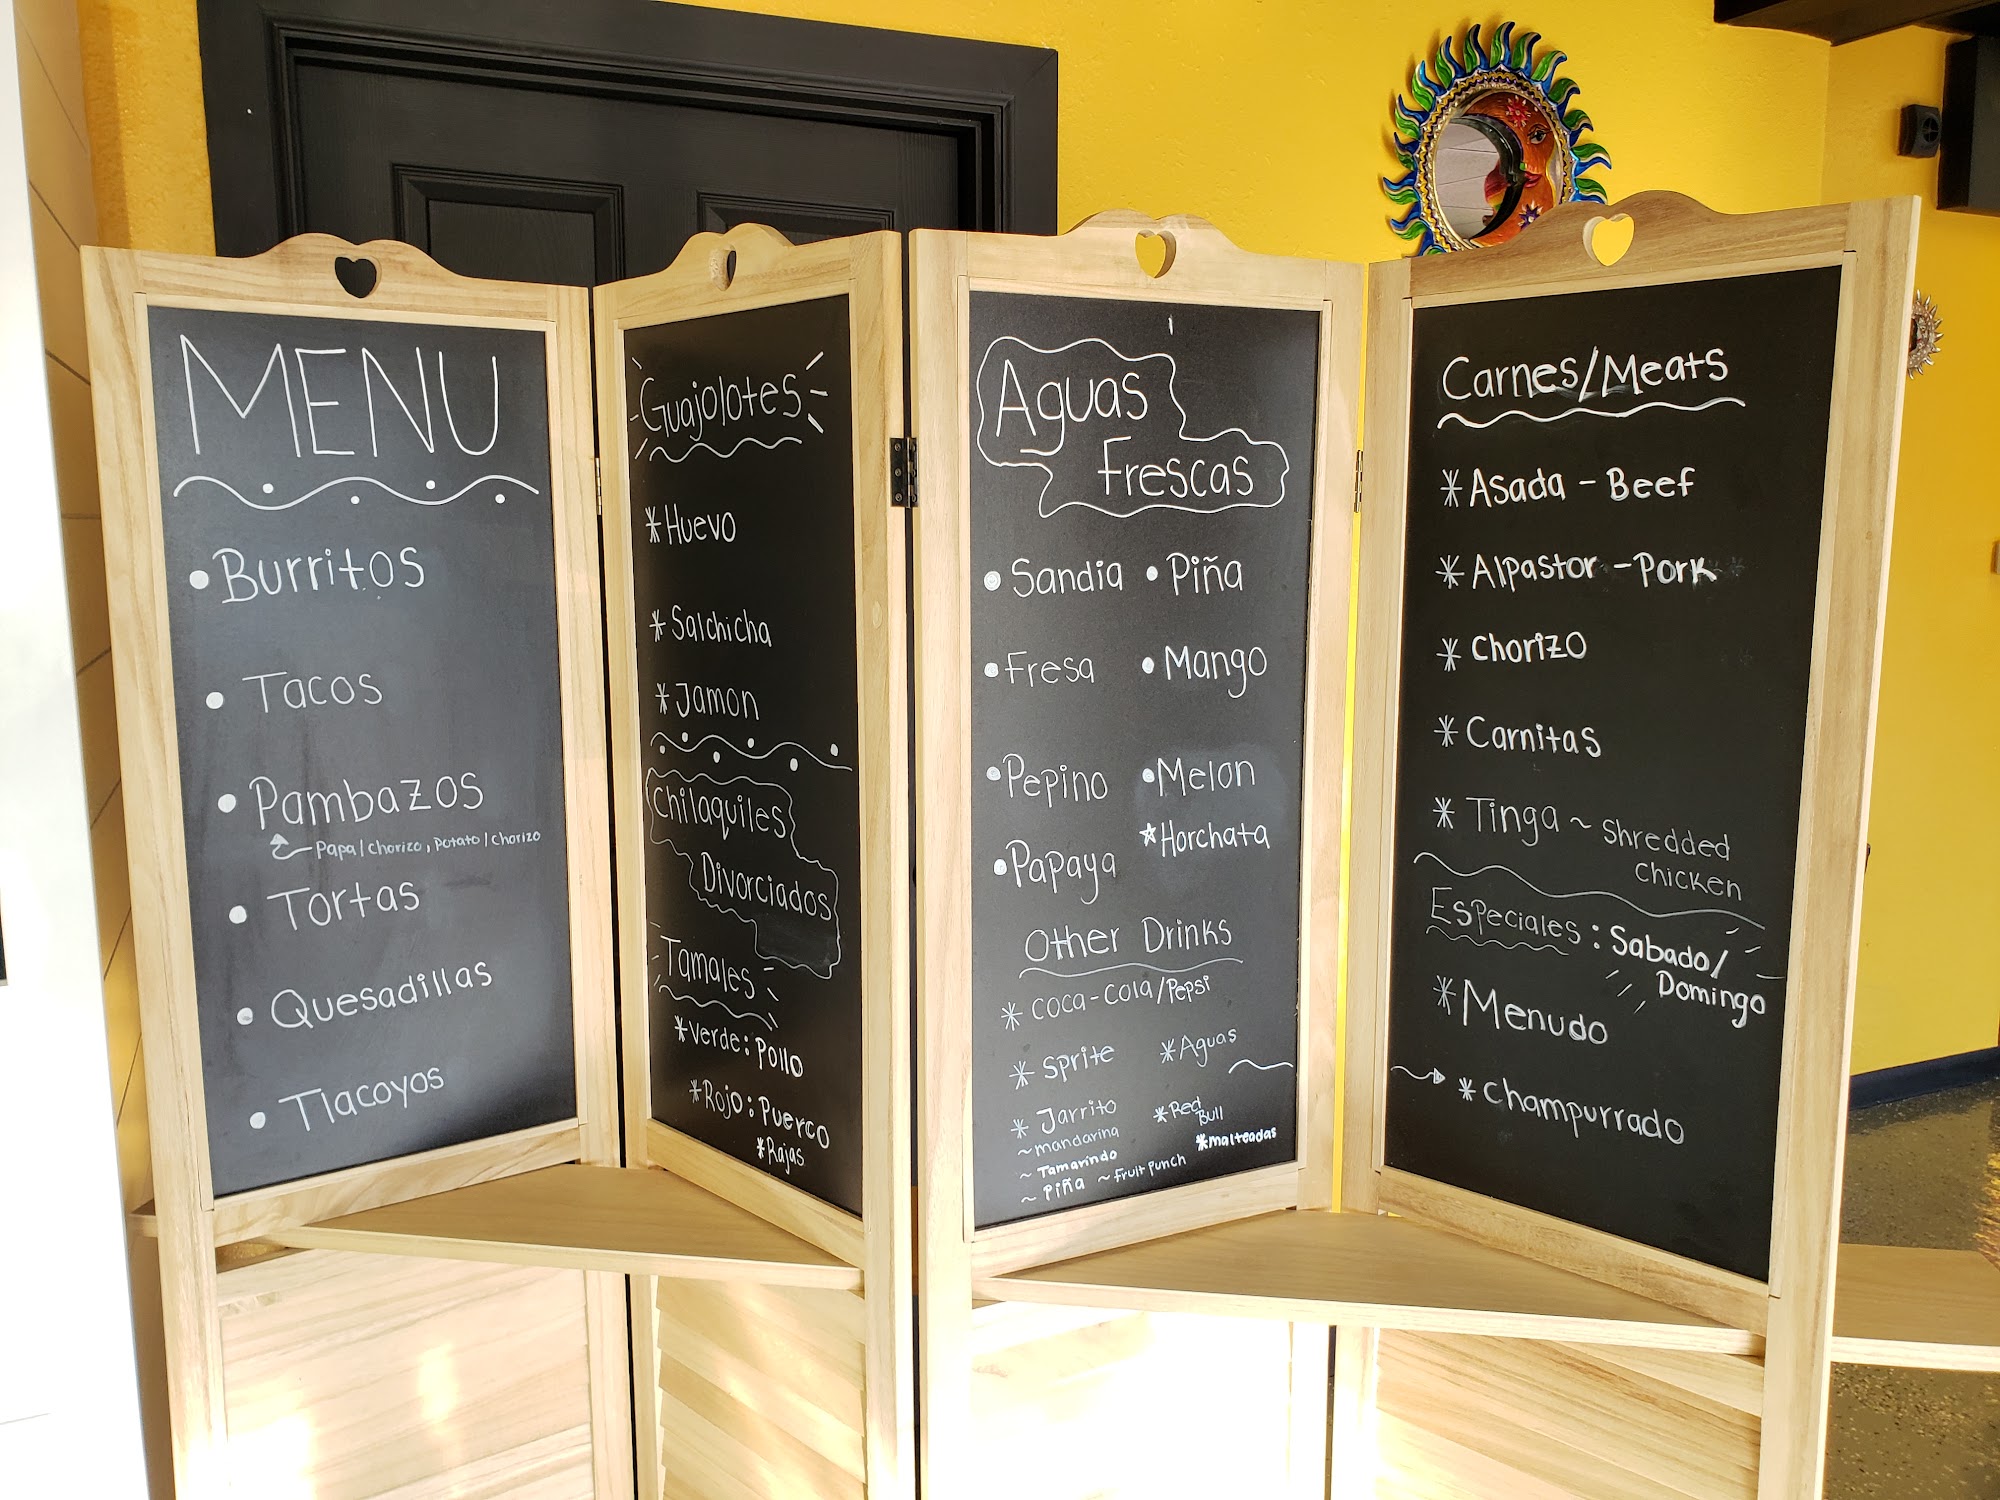 MENU
• Burritos
• Tacos
• Pambazos
Papa/Chorizo, Potato/Chorizo
• Tortas
• Quesadillas
• Tlacoyos
Guajolotes
*Huevo
*Salchicha
*Jamon
Chilaquiles
Divorciados
Tamales
*Verde: Pollo
*Rojo: Puerco
*Rajas
Aguas
Frescas
• Sandia • Piña
• Fresa • Mango
• Pepino • Melon
• Papaya *Horchata
Other Drinks
* Coca-Cola/Pepsi
* Sprite *Aguas
* Jarrito *Red Bull
~mandarina *malteadas
~Tamarindo
~Piña ~Fruit Punch
Carnes/Meats
*Asada - Beef
*Alpastor - Pork
* Chorizo
* Carnitas
* Tinga ~ Shredded
chicken
Especiales: Sabado/
Domingo
*Menudo
*Champurrado